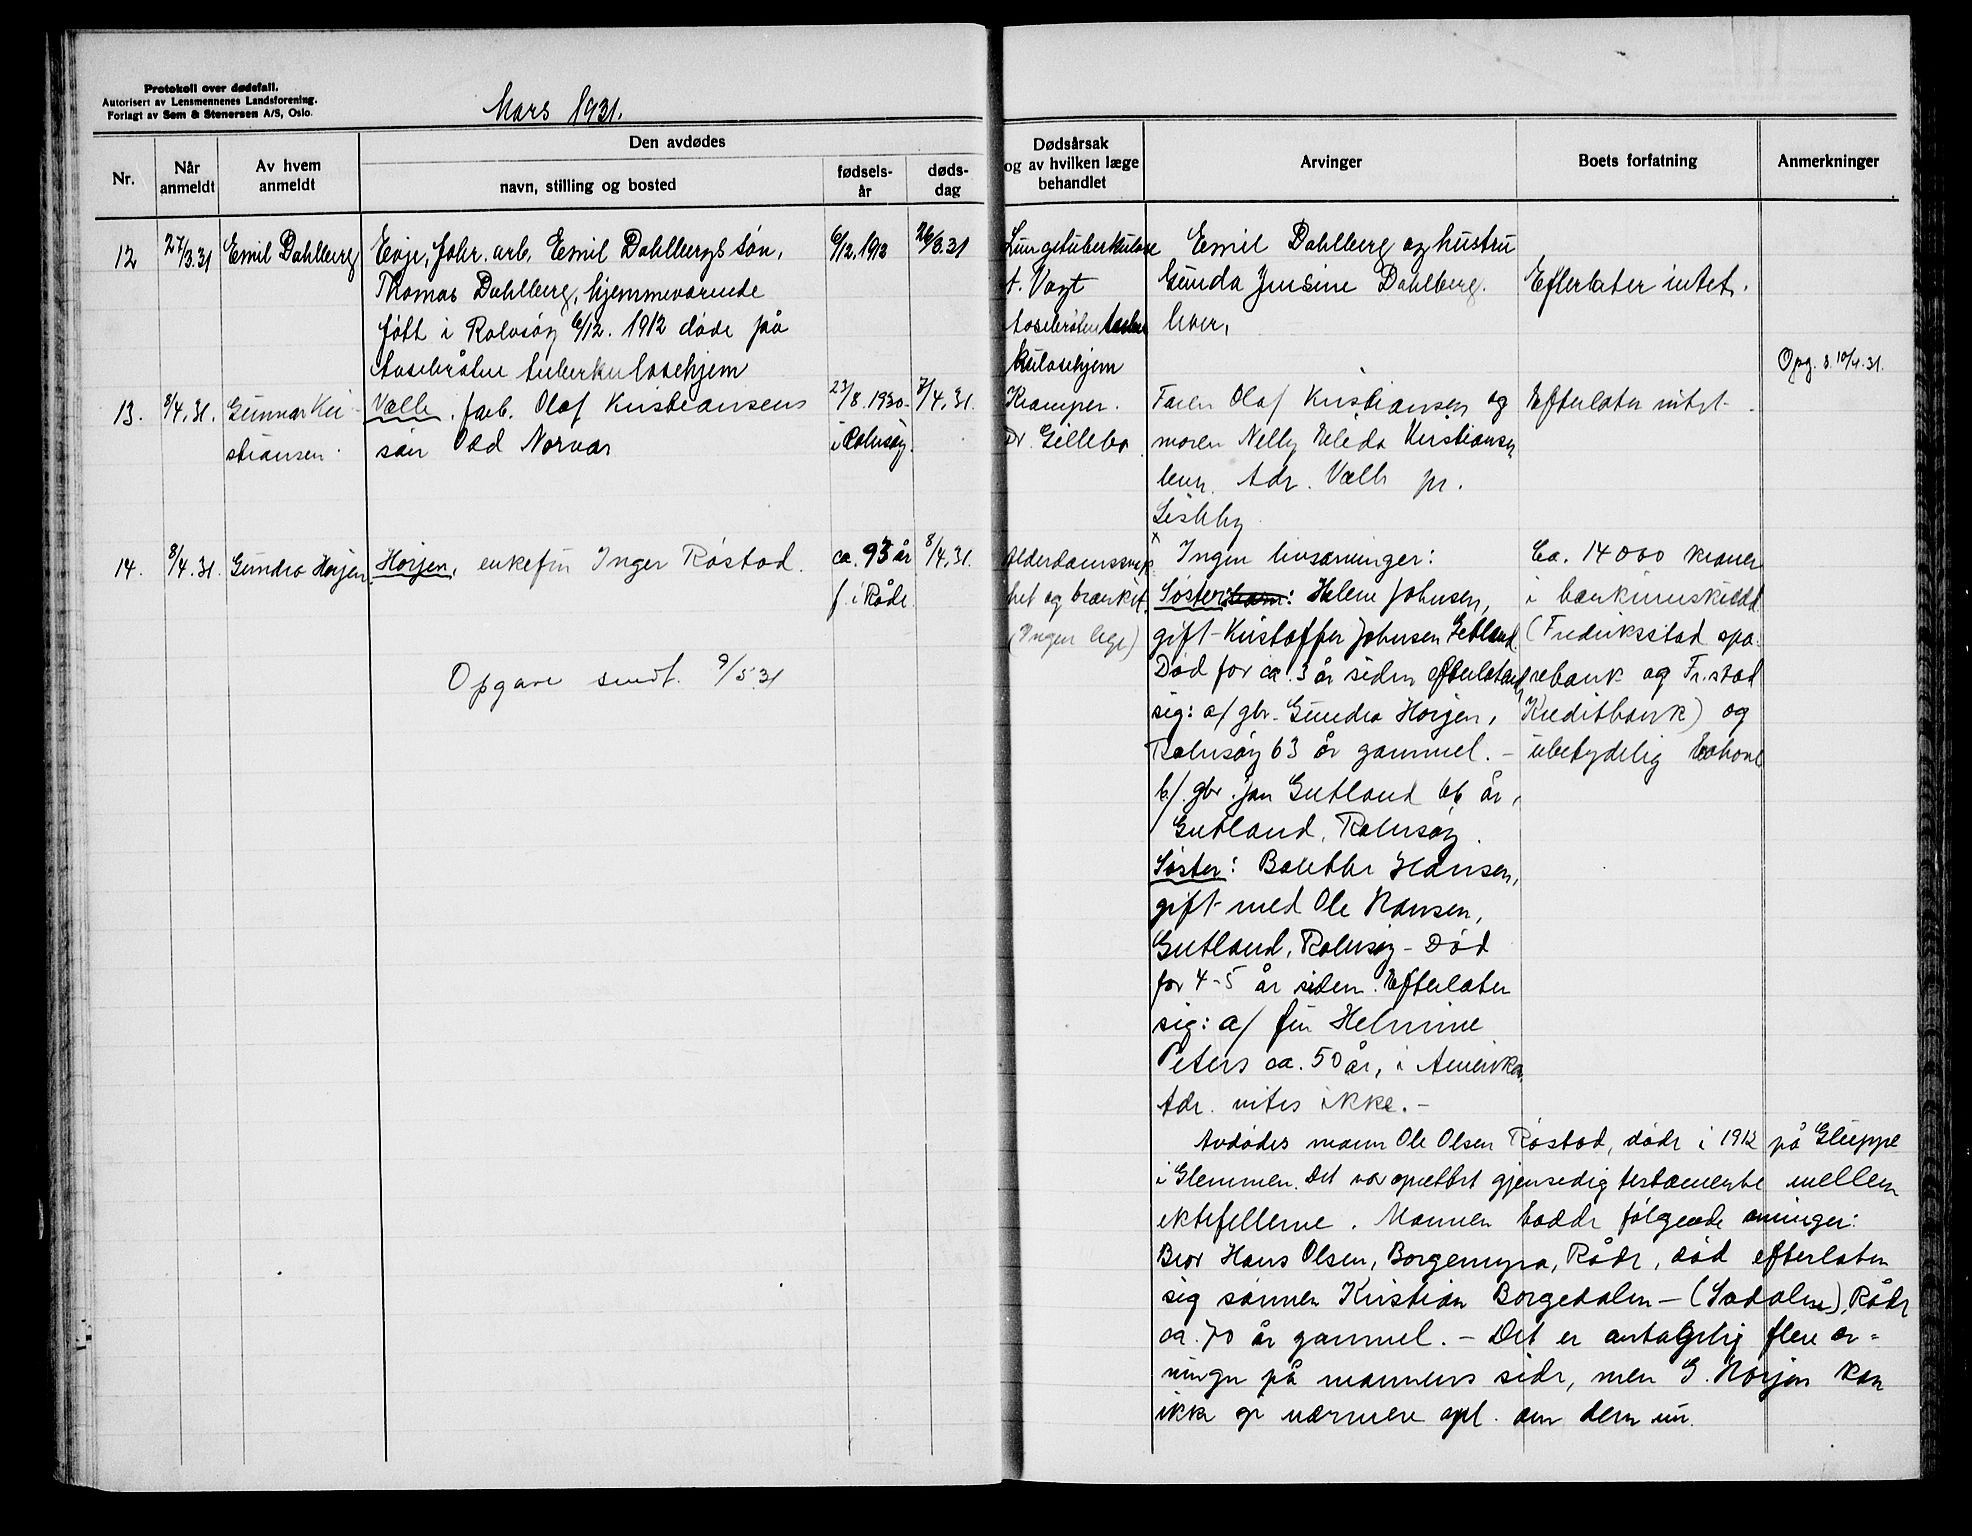 Protokoll over dødsfall.
Autorisert av Lensmennenes Landsforening.
Forlagt av Sem & Stenersen A/S, Oslo.
Mars 1931.
Nr.
Når anmeldt
Av hvem anmeldt
Den avdødes
navn, stilling og bosted
fødselsår
dødsdag
Dødsårsak og av hvilken læge behandlet
Arvinger
Boets forfatning
Anmerkninger
12
27/3.31
Emil Dahlberg
Evje, fabr. arb. Emil Dahlbergs søn,
Thomas Dahlberg, hjemmeværende
født i Rolvsøy 6/12. 1912 døde på
tuberkulosehjem
6/12.1912
26/3.31
Lungetuberkulose
t. Vogt
kulosehjem
Emil Dahlberg og hustru
Gunda Jensine Dahlberg.
lever,
Efterlater intet.
Opg. s. 10/4.31.
13.
8/4.31.
Gunnar Kri-
stiansen.
Valle, farb. Olaf Kristiansens
søn Odd Norvar
23/8.1930
i Rolvsøy.
7/4.31.
Kramper.
Dr. Gillebo
Faren Olaf Kristiansen og
moren Nelly Kristiansen
lever. Adr. Valle pr.
Lisleby
Efterlater intet.
14.
8/4.31.
Gundro Horjen
Horjen, enkefru Inger Røstad.
ca. 93 år
f. i Råde
8/4.31.
Alderdomssvak-
het og brankit.
(Ingen lege)
x Ingen livsarvinger:
Søster: Helene Johnsen,
gift Kristoffer Johnsen Gutland.
Død for ca. 3 år siden efterlatend
sig: a/ gbr. Gundro Horjen,
Rolvsøy 63 år gammel. -
b/. gbr. Jon Gutland 66 år,
Gutland, Rolvsøy.
Søster: Bolette Hansen,
gift med Ole Hansen,
Gutland, Rolvsøy - Død
for 4-5 år siden. Efterlater
sig: a/ fru Helmine
Peters ca. 50 år, i Amerika
Adr. vites ikke. -
Ca. 14000 kroner
i bankinnskudd
(Fredriksstad spa-
rebank og Fr.stad
Kreditbank) og
ubetydelig løsøre
Opgave sendt. 9/5 31
Avdødes mann Ole Olsen Røstad, døde i 1912 på Gluppe
i Glemmen. Det var oprettet gjensidig testamente mellem
ektefellerne. Mannen hadde følgende arvinger:
Bror Hans Olsen, Borgemyra, Råde, død efterlaten
sig sønnen Kristian Borgedalen - (Sodalen), Råde
ca. 70 år gammel. - Det er antagelig flere ar-
vinger på mannens side, men G. Horjen kan
ikke gi nærmere opl. om dem nu.